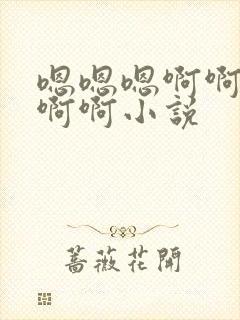 嗯嗯嗯啊啊
啊啊小説
薔薇花開